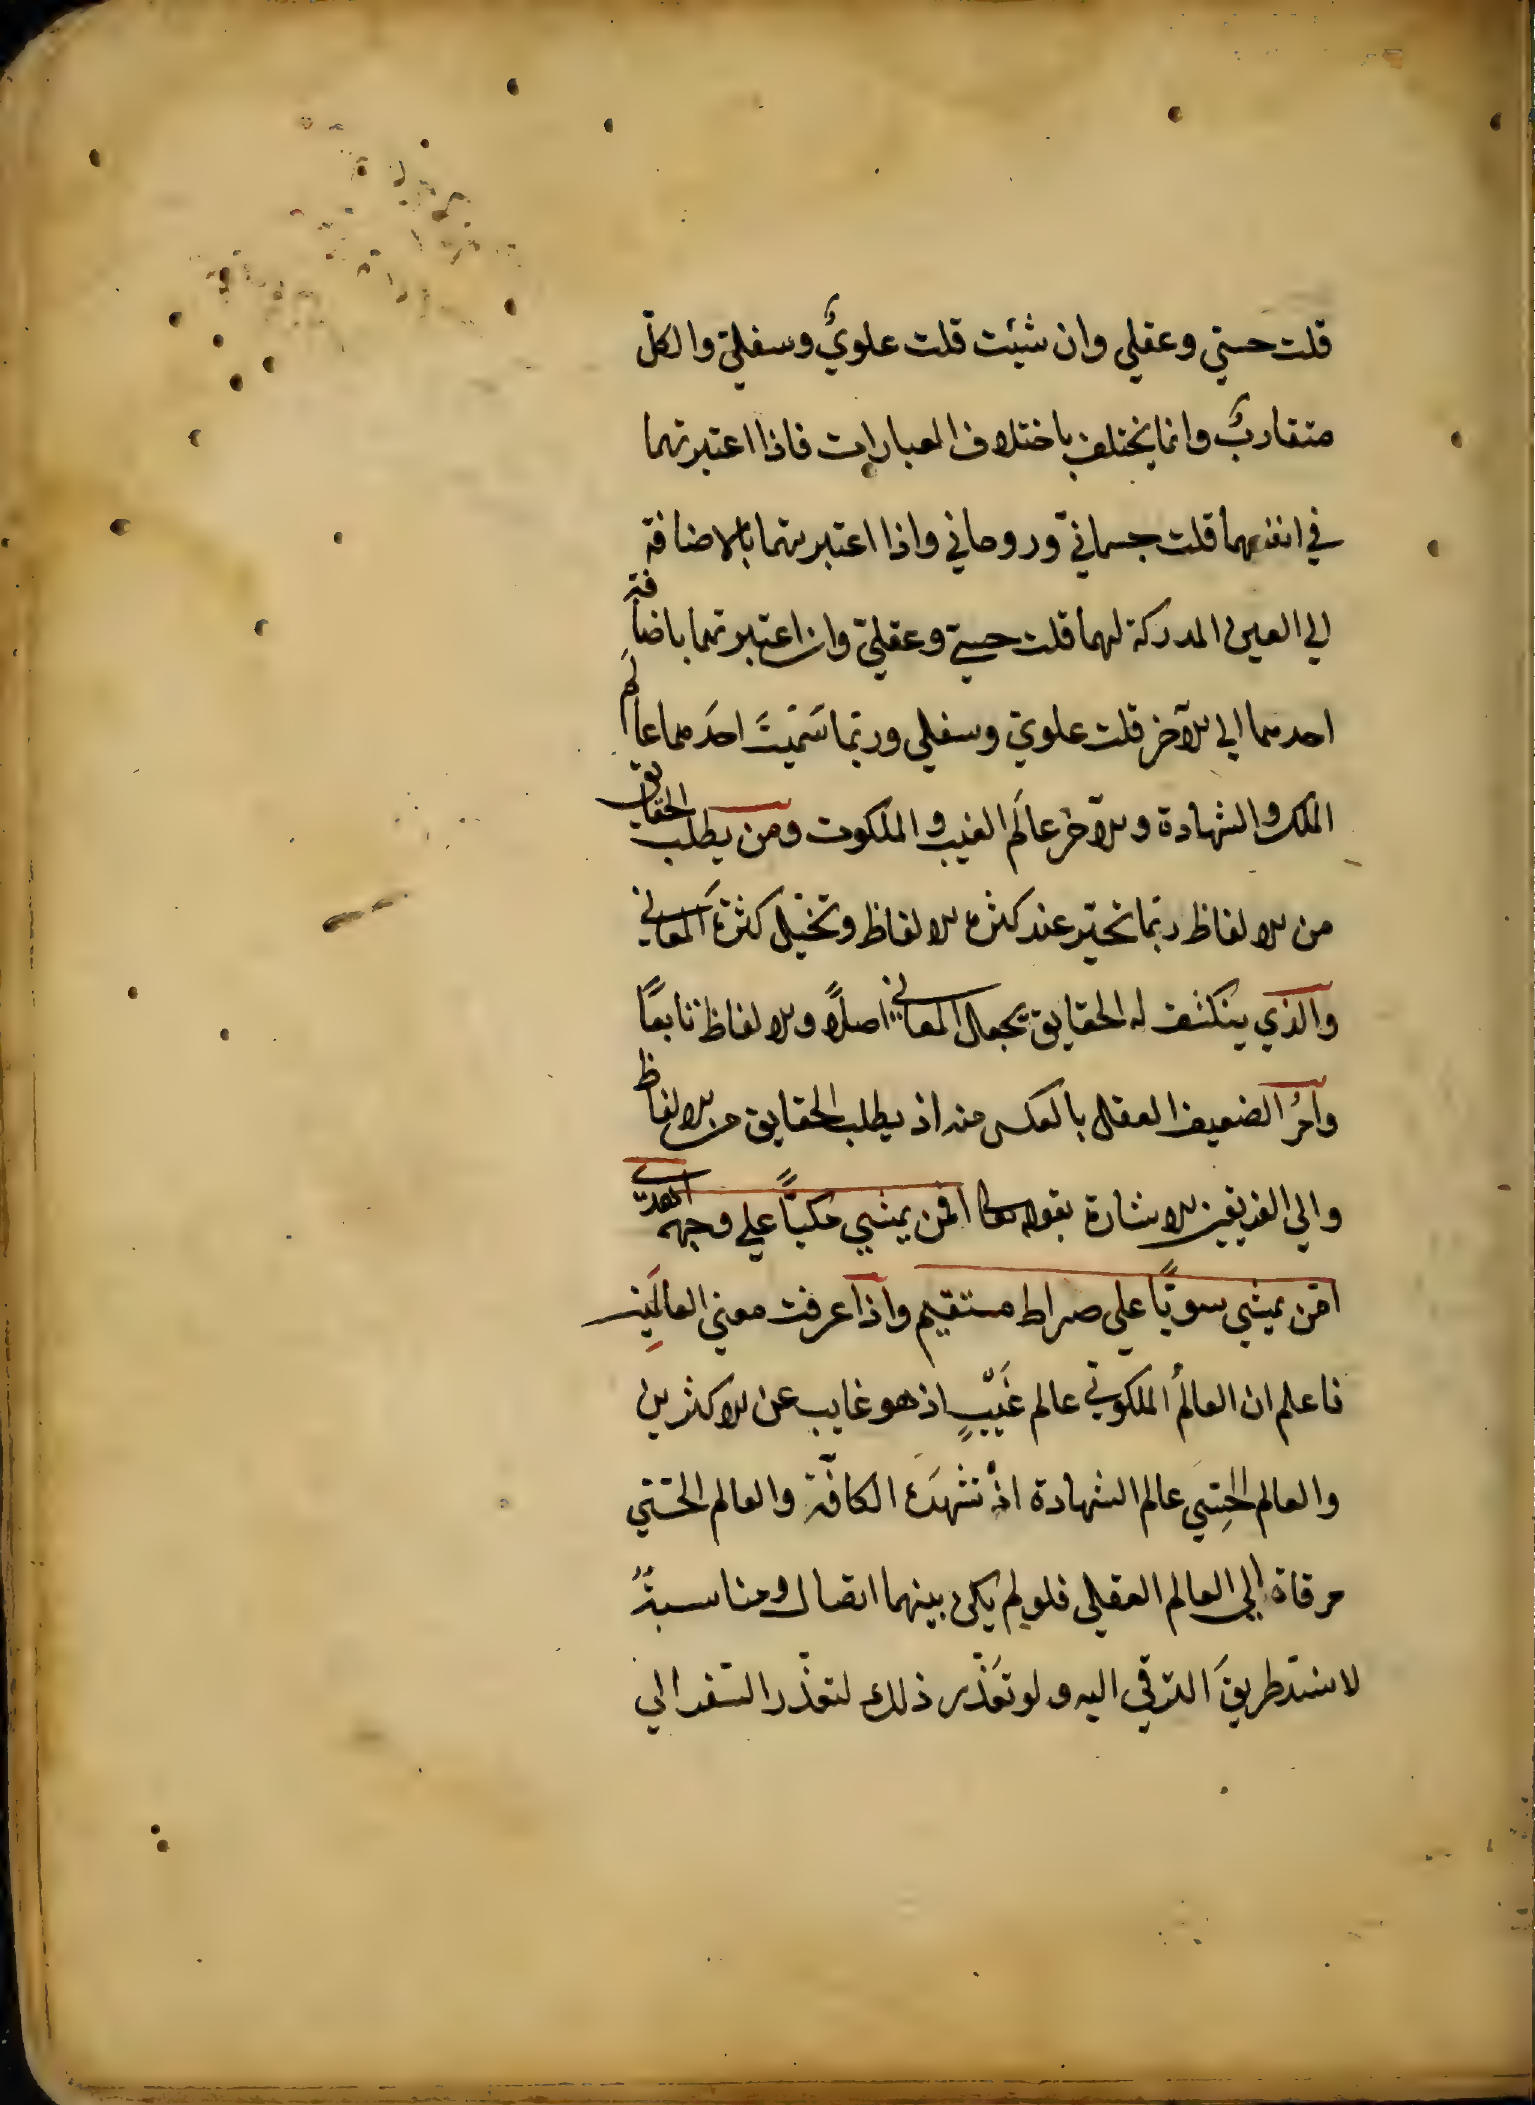 قلت حسّي وعقلي وان شئت قلت علويٌّ وسفليّ والكلّ
متقاربٌ وانما يختلف باختلاف العبارات فاذا اعتبرتهما
في انفسهما قلت جسمانيّ وروحاني واذا اعتبرتهما بالاضافة
الي العين المدركة لهما قلت حسيّ وعقليّ وان اعتبرتهما باضافة
احدهما الي الآخر قلت علويّ وسفلي وربّما سَمّيتَ احدَهما عالَم
الملك والشهادة والآخر عالَم الغيب والملكوت ومن يطلب الحقايق
من الالفاظ ربّما تحيّر عند كثرة الالفاظ وتخيّل كثرة المعاني
والذي ينكشف له الحقايق يجعل المعاني اصلاً والالفاظ تابعاً
وامرُ الضعيف العقل بالعكس منه اذ يطلب الحقايق من الالفاظ
والي الفريقين الاشارة بقوله تعالى افمن يمشي مكبّاً علي وجهه اهدي
امّن يمشي سويّاً علي صراط مستقيم واذا عرفت معني العالَمين
فاعلم ان العالمُ الملكوتي عالم غَيْبٍ اذ هو غايب عن الاكثرين
والعالم الحِسّي عالم الشهادة اذ تشهَده الكافّة والعالم الحسّي
مرقاة الي العالم العقلي فلو لم يكن بينهما اتصال ومناسبةٌ
لانسدّ طريقَ الترقي اليه ولو تعَذّر ذلك لتعذّر السّفر الي